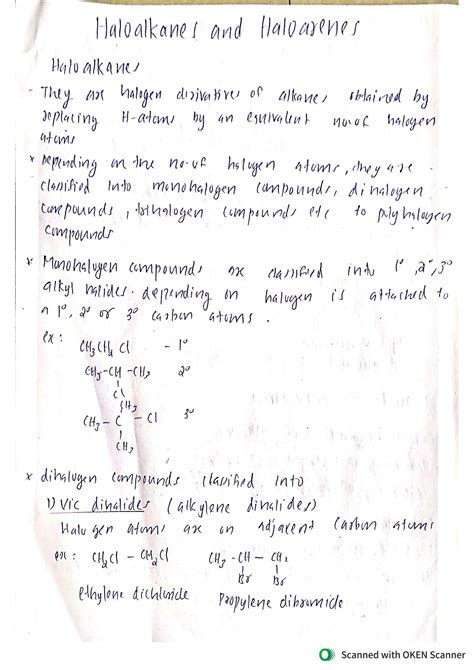 Haloalkanes and Haloarenes
Haloalkanes
- They are halogen derivatives of alkanes, obtained by
replacing H-atoms by an equivalent no. of halogen
atoms
* Depending on the no. of halogen atoms, they are
classified into monohalogen compounds, dihalogen
compounds, trihalogen compounds etc to polyhalogen
compounds
* Monohalogen compounds are classified into 1°, 2°, 3°
alkyl halides. depending on halogen is attached to
a 1°, 2° or 3° carbon atoms.
ex:
CH3CH2 Cl - 1°
CH3-CH-CH3 2°
Cl
CH3
CH3-C-Cl 3°
CH3
* dihalogen compounds classified into
1) Vic dihalides (alkylene dihalides)
Halogen atoms are on adjacent carbon atoms
ex: CH2Cl - CH2Cl CH3-CH-CH2
Br Br
ethylene dichloride Propylene dibromide
Scanned with OKEN Scanner